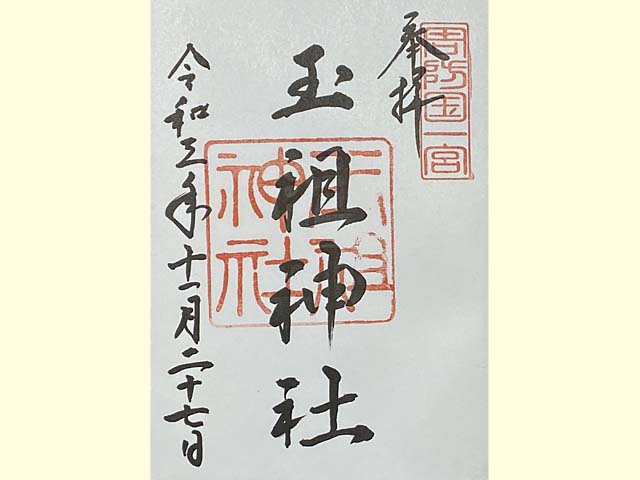 周防国一宮
奉拝
玉祖神社
玉祖神社
令和三年十一月二十七日